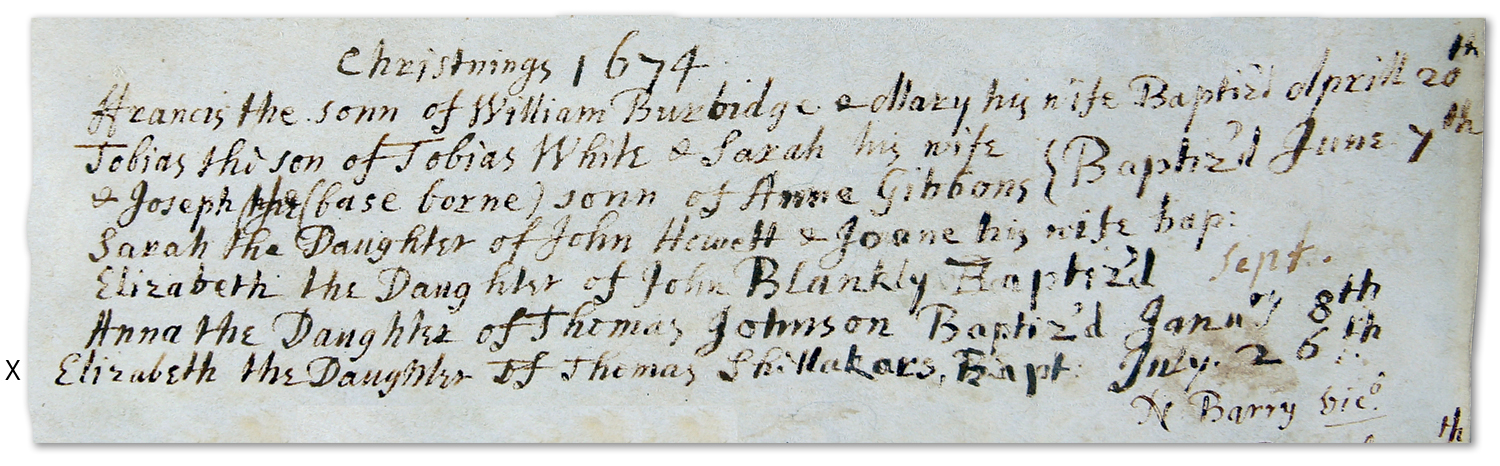 Christnings 1674
ffrancis the sonn of William Burbidge & Mary his wife Baptiz'd Aprill 20th
Tobias the son of Tobias White & Sarah his wife { Baptiz'd June 7th
& Joseph the (base borne) sonn of Anne Gibbons
Sarah the Daughter of John Howett & Joane his wife bap:
Elizabeth the Daughter of John Blankly Baptiz'd Sept.
Anna the Daughter of Thomas Johnson Baptiz'd Janu'y 8th
X Elizabeth the Daughter of Thomas Shillakars, Bapt: July. 26th
N Barry vic.
th